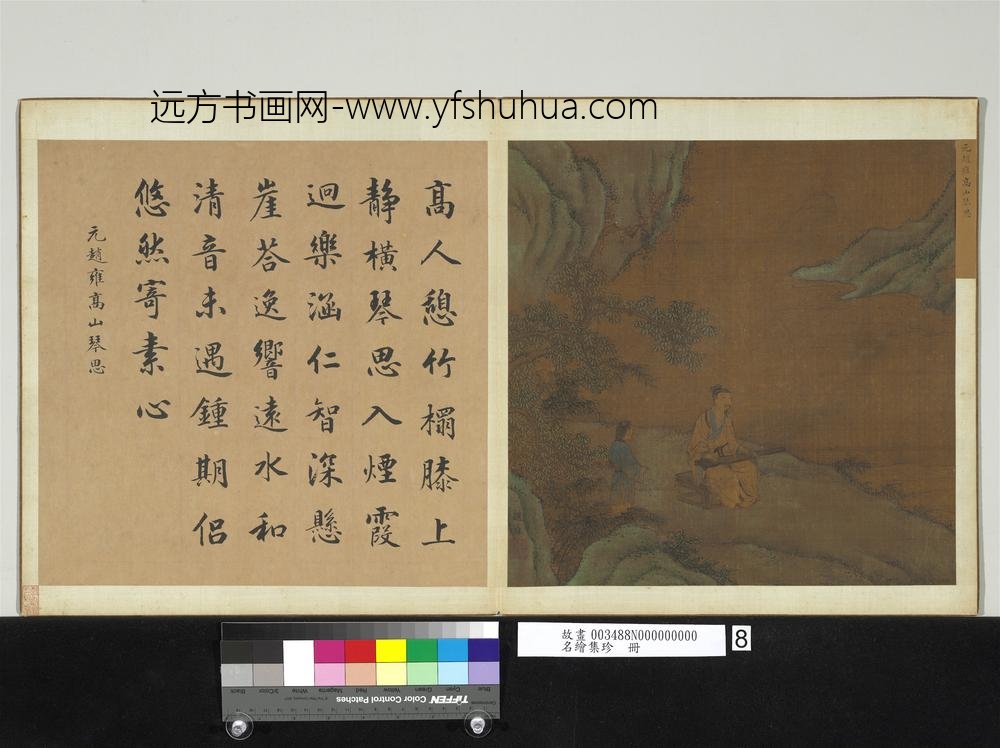 远方书画网-www.yfshuhua.com
高人憩竹榻膝上
静橫琴思入煙霞
迥樂涵仁智深懸
崖荅逸響遠水和
清音未遇鍾期侣
悠然寄素心
元趙雍高山琴思
元趙雍高山琴思
故畫 003488N000000000
名繪集珍 冊
8
Black
3/Color
White
Magenta
Red
Yellow
Green
Cyan
Blue
TIFFEN Color Control Patches